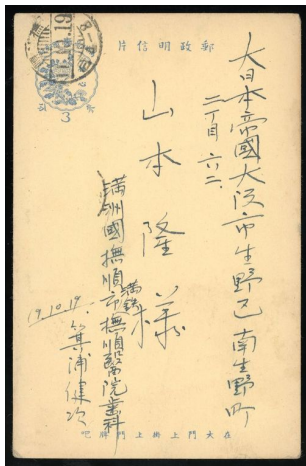 片信明政郵
3
大日本帝國大阪市生野区南生野町
二丁目六二、
山本隆様
満洲國撫順市撫順醫院歯科
満鉄
箕浦健次
19.10.19